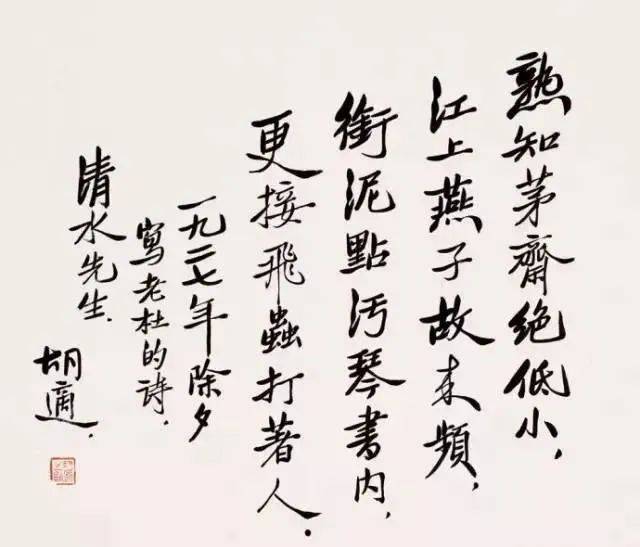 熟知茅齋絕低小，
江上燕子故來頻，
銜泥點汚琴書內，
更接飛蟲打著人．
一九二七年除夕
寫老杜的詩，
清水先生．
胡適．